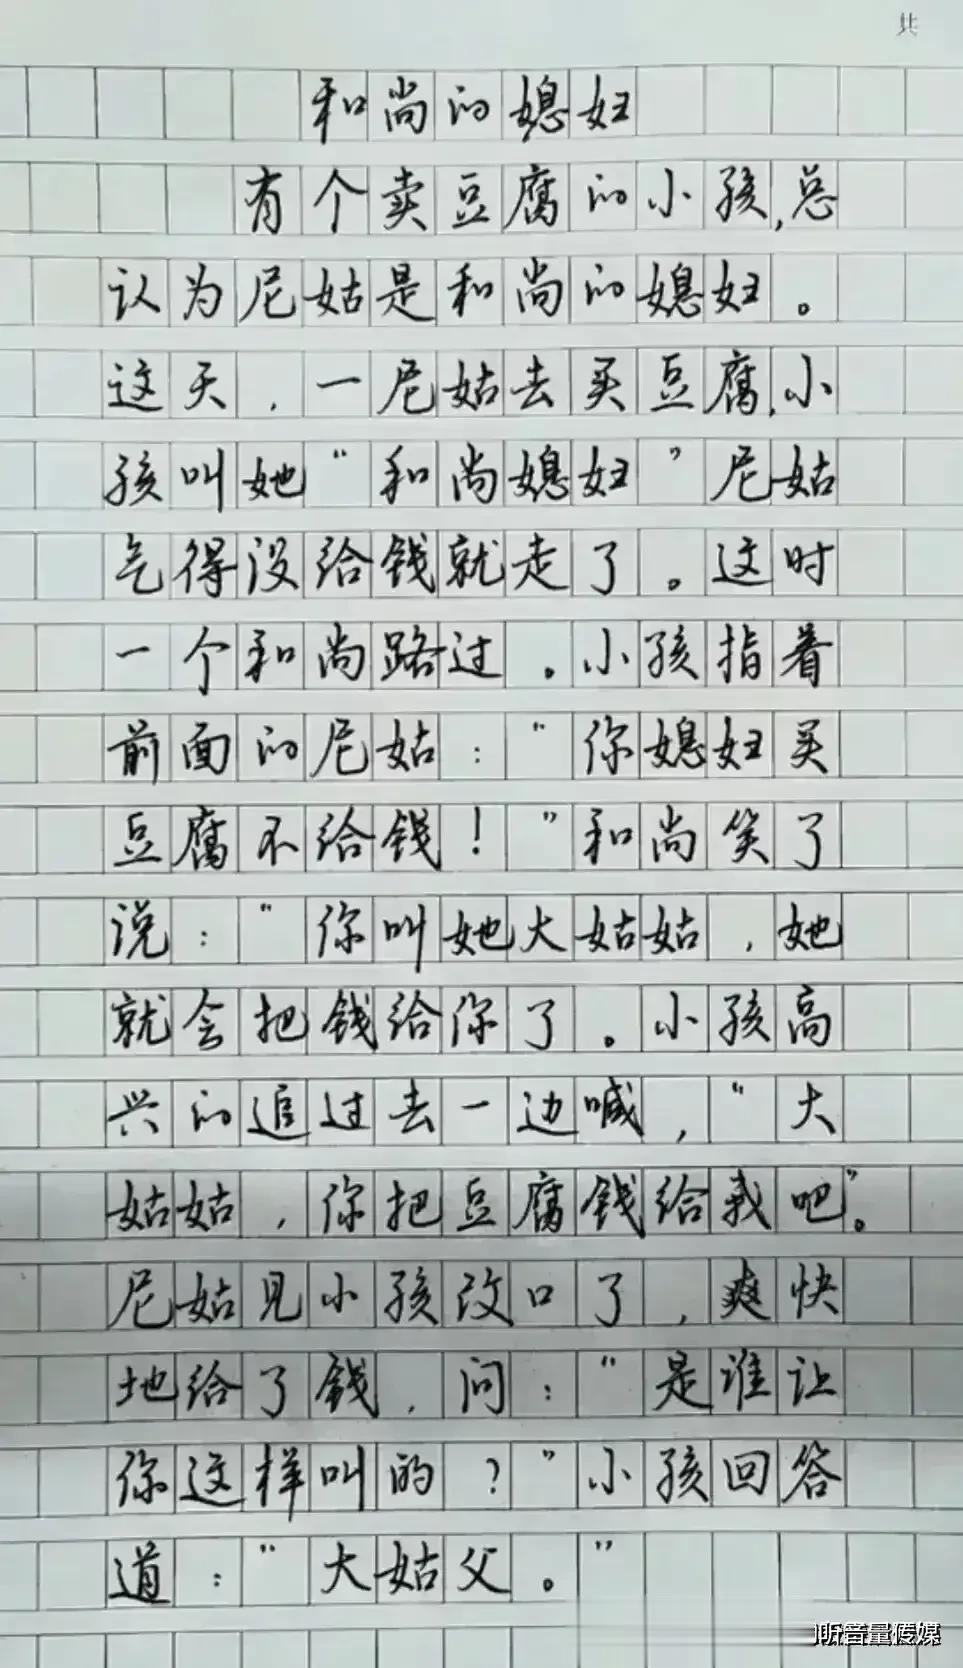 共
和尚的媳妇
有个卖豆腐的小孩,总
认为尼姑是和尚的媳妇。
这天,一尼姑去买豆腐,小
孩叫她“和尚媳妇”尼姑
气得没给钱就走了。这时
一个和尚路过。小孩指着
前面的尼姑:“你媳妇买
豆腐不给钱!”和尚笑了
说:“你叫她大姑姑,她
就会把钱给你了。小孩高
兴的追过去一边喊,“大
姑姑,你把豆腐钱给我吧”。
尼姑见小孩改口了,爽快
地给了钱,问:“是谁让
你这样叫的?”小孩回答
道:“大姑父。”
听音量传媒